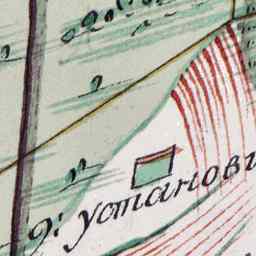 9: установи